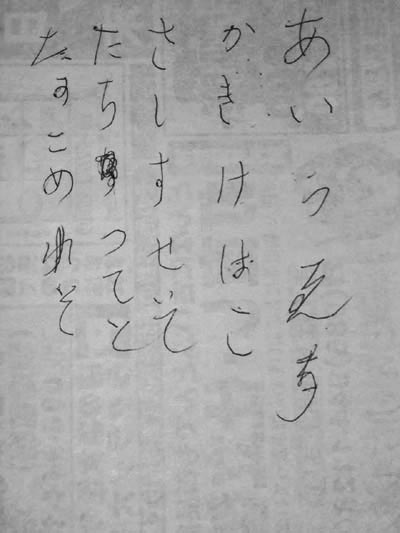 あいうえお
かきけばこ
さしすせいて
たちつてと
たすこめれそ